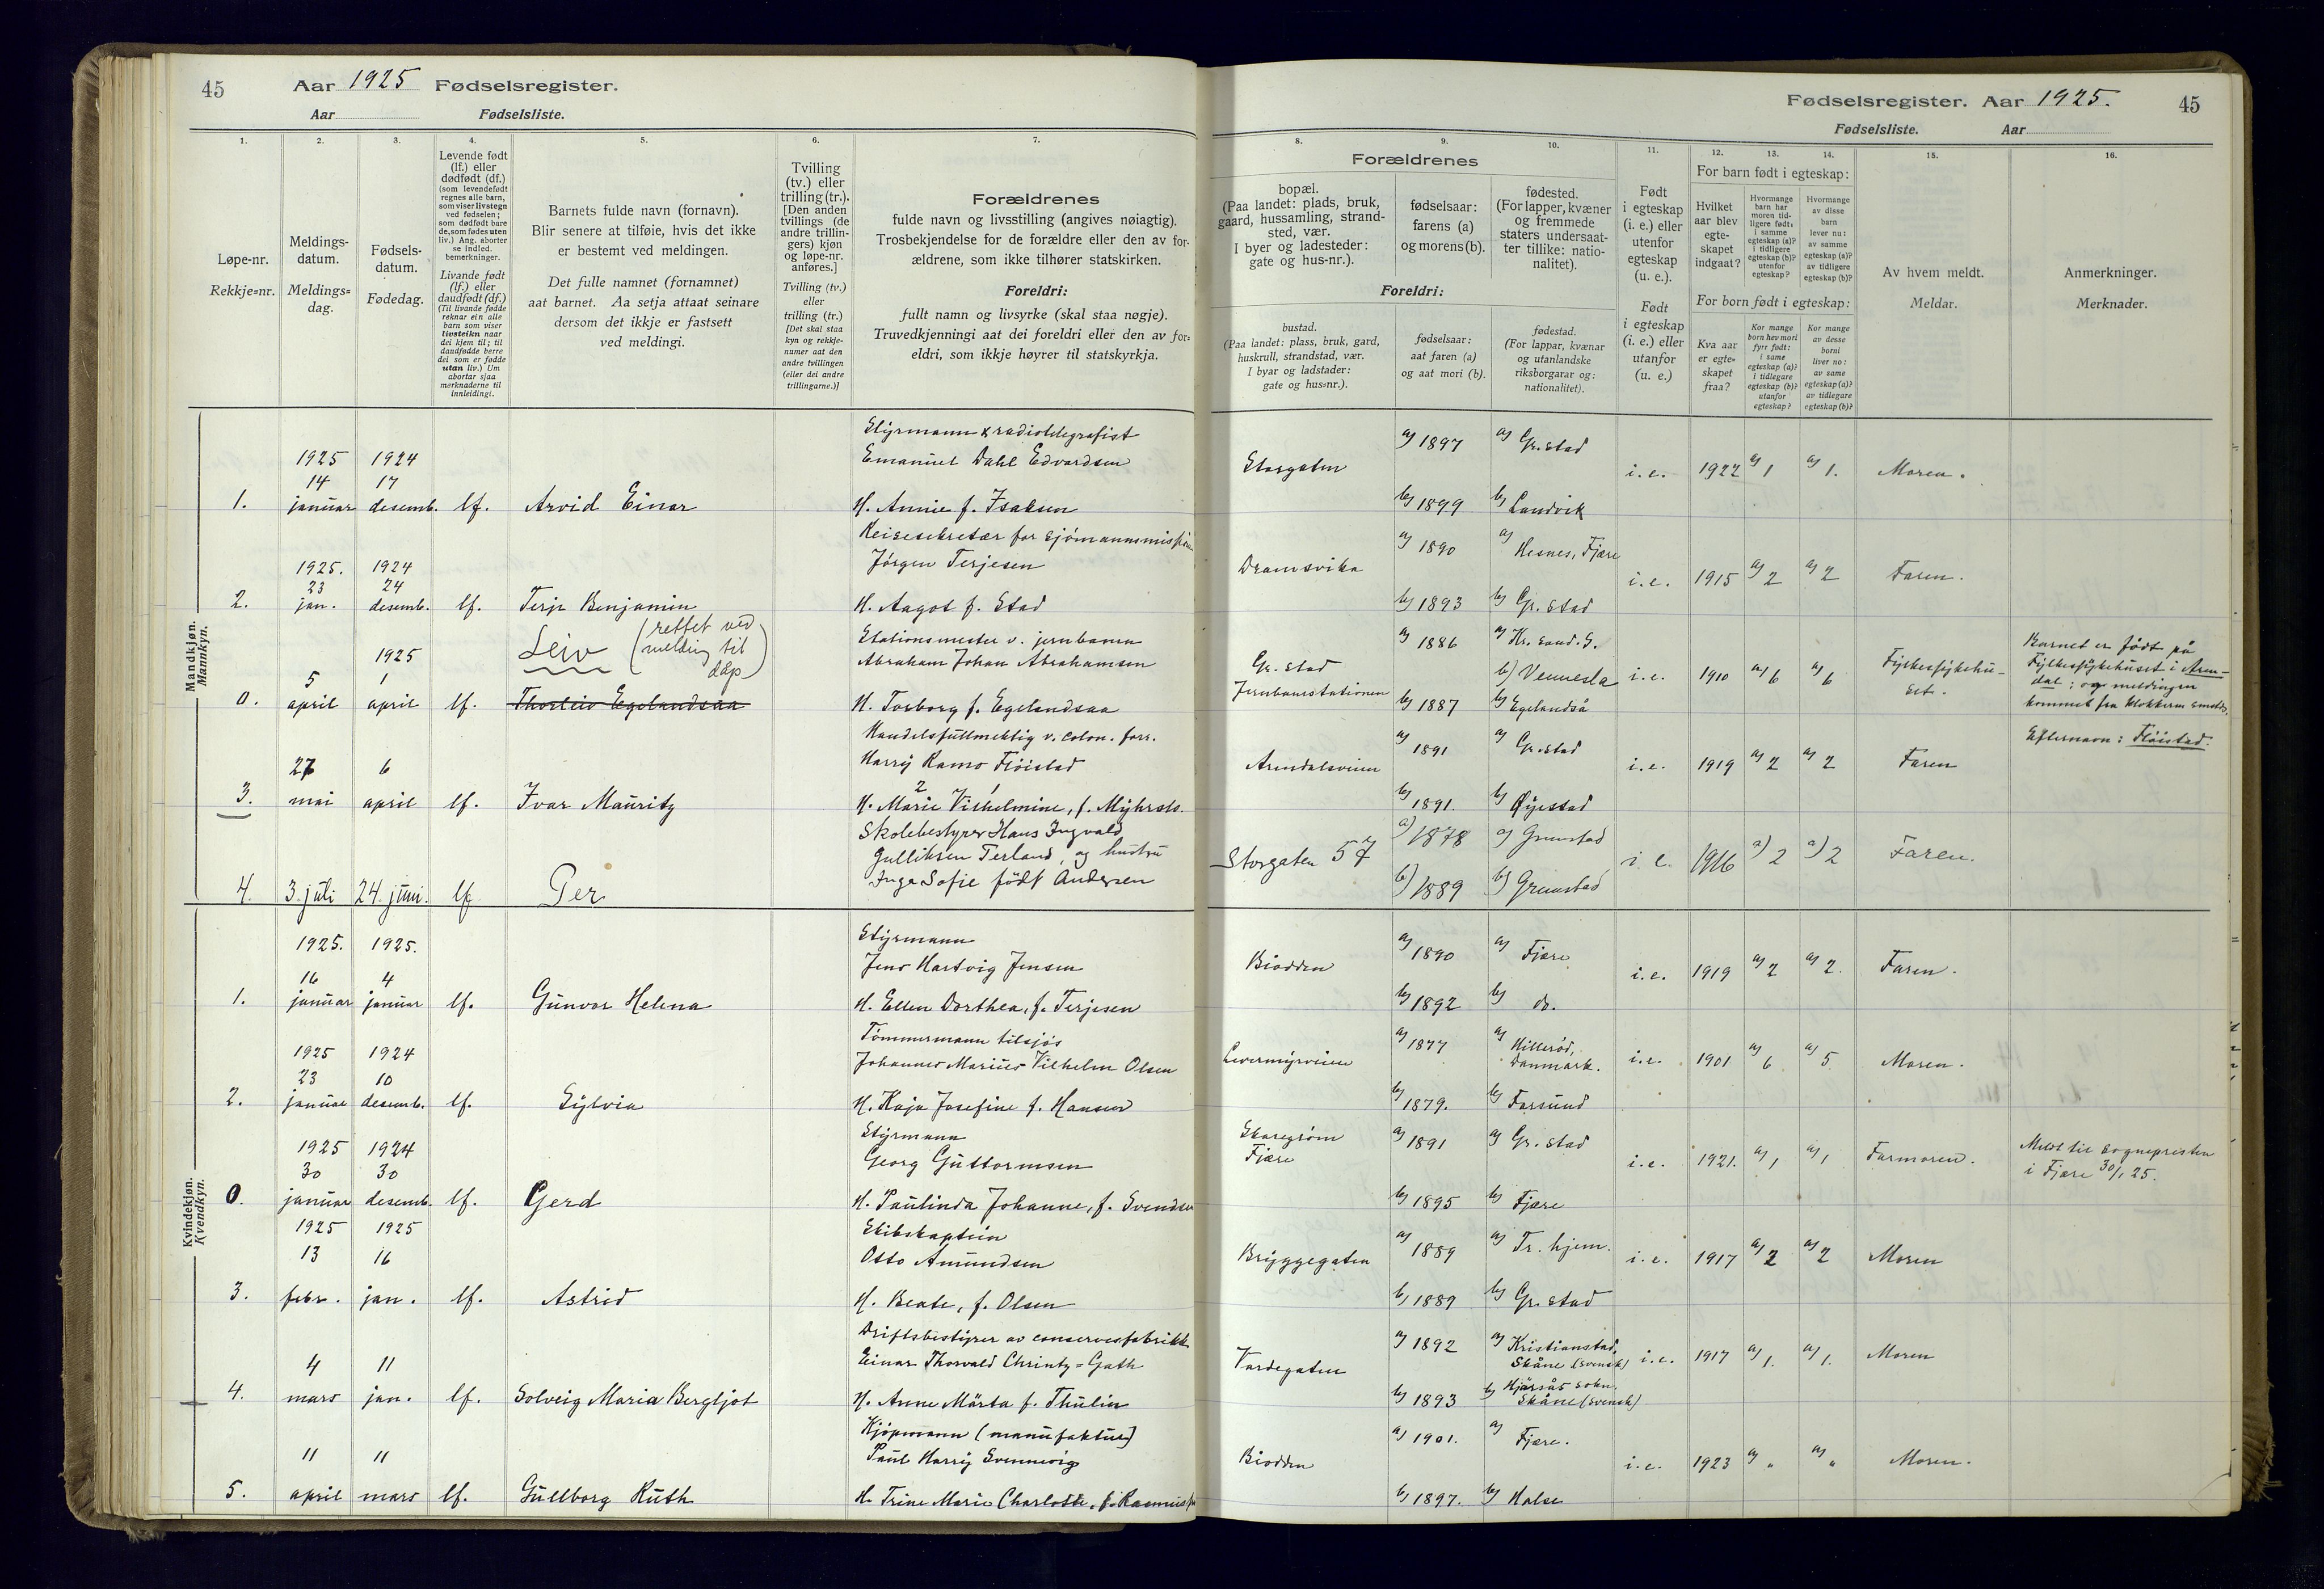 45 Aar 1925 Fødselsregister.
Aar Fødselsliste.
Fødselsregister. Aar 1925. 45
Fødselsliste. Aar
1. 2. 3. 4. 5. 6. 7.
Løpe-nr.
Rekkje=nr.
Meldings-
datum.
Meldings=
dag.
Fødsels-
datum.
Fødedag.
Levende født
(lf.) eller
dødfødt (df.)
(som levendefødt
regnes alle barn,
som viser livstegn
ved fødselen;
som dødfødt bare
de, som fødes uten
liv.) Ang. aborter
se indled.
bemerkninger.
Livande født
(lf.) eller
daudfødt (df.)
(Til livande fødde
reknar ein alle
barn som viser
livsteikn naar
dei kjem til; til
daudfødde berre
dei som er fødde
utan liv.) Um
abortar sjaa
merknaderne til
innleidingi.
Barnets fulde navn (fornavn).
Blir senere at tilføie, hvis det ikke
er bestemt ved meldingen.
Det fulle namnet (fornamnet)
aat barnet. Aa setja attaat seinare
dersom det ikkje er fastsett
ved meldingi.
Tvilling
(tv.) eller
trilling (tr.).
[Den anden
tvillings (de
andre trillin-
gers) kjøn
og løpe-nr.
anføres.]
Tvilling (tv.)
eller
trilling (tr.)
[Det skal staa
kyn og rekkje-
numer aat den
andre tvillingen
(eller dei andre
trillingarne.)]
Forældrenes
fulde navn og livsstilling (angives nøiagtig).
Trosbekjendelse for de forældre eller den av for-
ældrene, som ikke tilhører statskirken.
Foreldri:
fullt namn og livsyrke (skal staa nøgje).
Truvedkjenningi aat dei foreldri eller den av for=
eldri, som ikkje høyrer til statskyrkja.
8. 9. 10. 11. 12. 13. 14. 15. 16.
Forældrenes
bopæl.
(Paa landet: plads, bruk,
gaard, hussamling, strand-
sted, vær.
I byer og ladesteder:
gate og hus-nr.).
fødselsaar:
farens (a)
og morens (b).
fødested.
(For lapper, kvæner
og fremmede
staters undersaat-
ter tillike: natio-
nalitet).
Foreldri:
bustad.
(Paa landet: plass, bruk, gard,
huskrull, strandstad, vær.
I byar og ladstader:
gate og hus=nr.).
fødselsaar:
aat faren (a)
og aat mori (b).
fødestad.
(For lappar, kvænar
og utanlandske
riksborgarar og:
nationalitet).
Født
i egteskap
(i. e.) eller
utenfor
egteskap
(u. e.).
Født
i egteskap
(i. e.) eller
utanfor
(u. e.)
For barn født i egteskap:
Hvilket
aar blev
egte-
skapet
indgaat?
Hvormange
barn har
moren tid-
ligere født:
i samme
egteskap (a)?
i tidligere
egteskap (b)?
utenfor
egteskap?
Hvormange
av disse
barn
lever nu:
av samme
egteskap (a)?
av tidligere
egteskap (b)?
For born født i egteskap:
Kva aar
er egte=
skapet
fraa?
Kor mange
born hev mori
fyrr født:
i same
egteskap (a)?
i tidlegare
egteskap (b)?
utanfor
egteskap?
Kor mange
av desse
borni
liver no:
av same
egteskap (a)?
av tidlegare
egteskap (b)?
Av hvem meldt.
Meldar.
Anmerkninger.
Merknader.
Mandkjøn.
Mannkyn.
Styrmann & radiotelegrafist
1925 1924 Emanuel Dahl Edvardsen
14 17
1. januar desemb. lf. Arvid Einar H. Annie f. Isaksen
Storgaten a) 1897 a) Gr.stad i.e. 1922 a) 1 a) 1. Moren.
b) 1899 b) Landvik
Reisesekretær for sjømannsmissjon
1925. 1924 Jørgen Terjesen
23 24
2. jan. desemb. lf. Terje Benjamin H. Aagot f. Stad
Dramsvika a) 1890 a) Hesnes, Fjære i.e. 1915 a) 2 a) 2 Faren.
b) 1893 b) Gr. stad
Leiv (rettet ved
melding til
dåp)
1925 Stationsmester v. jernbanen
Abraham Johan Abrahamsen
5 1
0. april april lf. Thorleiv Egelandsaa H. Torborg f. Egelandsaa
Gr. stad
Jernbanestationen a) 1886 a) Kr. sand. S.
b) Vennesla i.e. 1910 a) 6 a) 6 Fylkessykehu-
set.
b) 1887 b) Egelandså
Barnet er født på
Fylkessykehuset i Aren-
dal; og meldingen
kommet fra klokkeren smstds.
Handelsfullmektig v. colon. forr.
27 6 Harry Ramo Fløistad
3. mai april lf. Ivar Mauritz H. Marie Vilhelmine, f. Myhrstø.
2 1
Arendalsveien a) 1891 a) Gr.stad i.e. 1919 a) 2 a) 2 Faren
b) 1891. b) Øyestad
Efternavn: Fløistad.
Skolebestyrer Hans Ingvald
Gulliksen Terland, og hustru
4. 3. juli 24. juni. lf Per Inga Sofie født Andersen
Storgaten 57 a) 1878 a) Grimstad i. e. 1916 a) 2 a) 2 Faren.
b) 1889 b) Grimstad
Kvindekjøn.
Kvendkyn.
1925. 1925. Styrmann
Jens Hartvig Jensen
16 4
1. januar januar lf. Gunvor Helena H. Ellen Dorthea, f. Terjesen
Biodden a) 1890 a) Fjære i.e. 1919 a) 2 a) 2. Faren.
b) 1892 b) do.
Tømmermann tilsjøs
1925 1924 Johannes Marius Vilhelm Olsen
23 10
2. januar desemb. lf. Sylvia H. Kaja Josefine f. Hansen
Levermyrveien a) 1877 a) Hillerød,
Danmark. i.e. 1901 a) 6 a) 5 Moren.
b) 1879. b) Farsund
Styrmann
1925 1924 Georg Guttormsen
30 30
0. januar desemb. lf. Gerd H. Paulinda Johanne, f. Svendsen
Skaregrøm
Fjære a) 1891 a) Gr. stad i.e. 1921. a) 1 a) 1 Farmoren.
b) 1895 b) Fjære
Meldt til sognepresten
i Fjære 30/1 25.
1925 1925 Skibskaptein
13 16 Otto Amundsen
3. febr. jan. lf. Astrid H. Beate, f. Olsen
Bryggegaten a) 1889 a) Tr. hjem. i.e. 1917 a) 2 a) 2 Moren
b) 1889 b) Gr. stad
Driftsbestyrer av conservesfabrikk
4 11 Einar Thorvald Christy=Gath
4. mars jan. lf. Solveig Maria Bergljot H. Anne Märta f. Thulin
Vardegaten a) 1892 a) Kristianstad,
Skåne (svensk) i.e. 1917 a) 1. a) 1. Moren
b) 1893 b) Hjärsås sokn.
Skåne (svensk)
Kjøpmann (manufaktur)
11 11 Paul Harry Svennevig
5. april mars lf. Gullborg Ruth H. Trine Marie Charlotte, f. Rasmussen
Biodden a) 1901. a) Fjære. i.e. 1923 a) " a) " Moren.
b) 1897. b) Halse